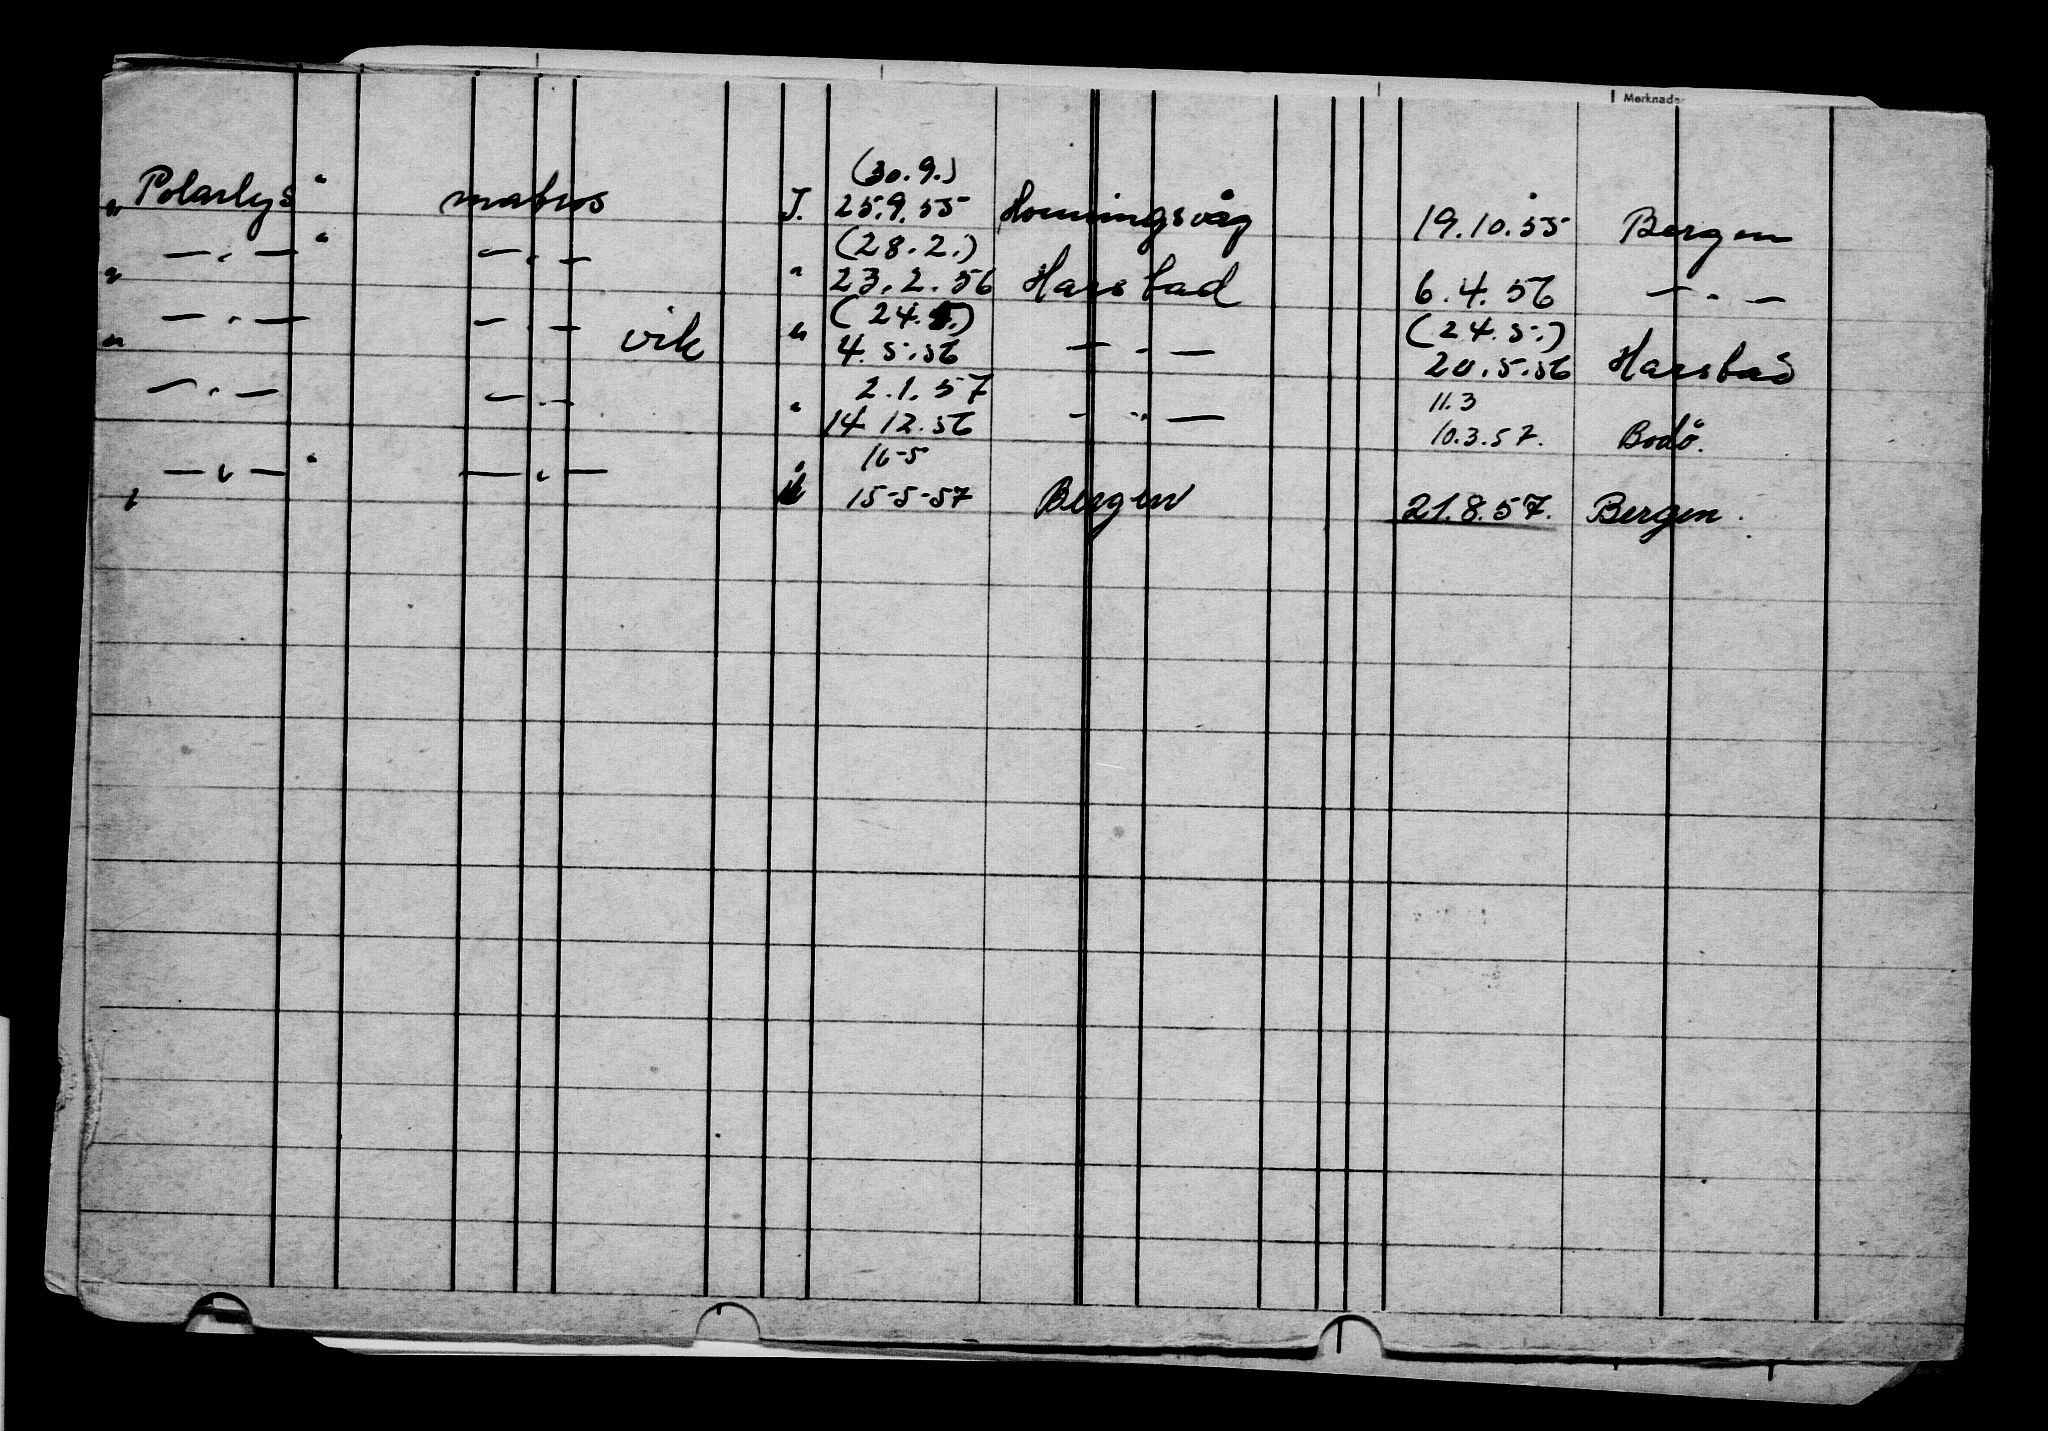 Merknader
(30.9.)
"Polarlys" matros J. 25.9.55 Honningsvåg 19.10.55 Bergen
(28.2.)
" — " — " — " — " 23.2.56 Harstad 6.4.56 — " —
(24.5.) (24.5.)
" — " — — " — vik " 4.5.56 — " — 20.5.56 Harstad
2.1.57 11.3
— " — — " — " 14.12.56 — " — 10.3.57. Bodø.
16-5
" — " — " — " — 15-5-57 Bergen 21.8.57. Bergen.